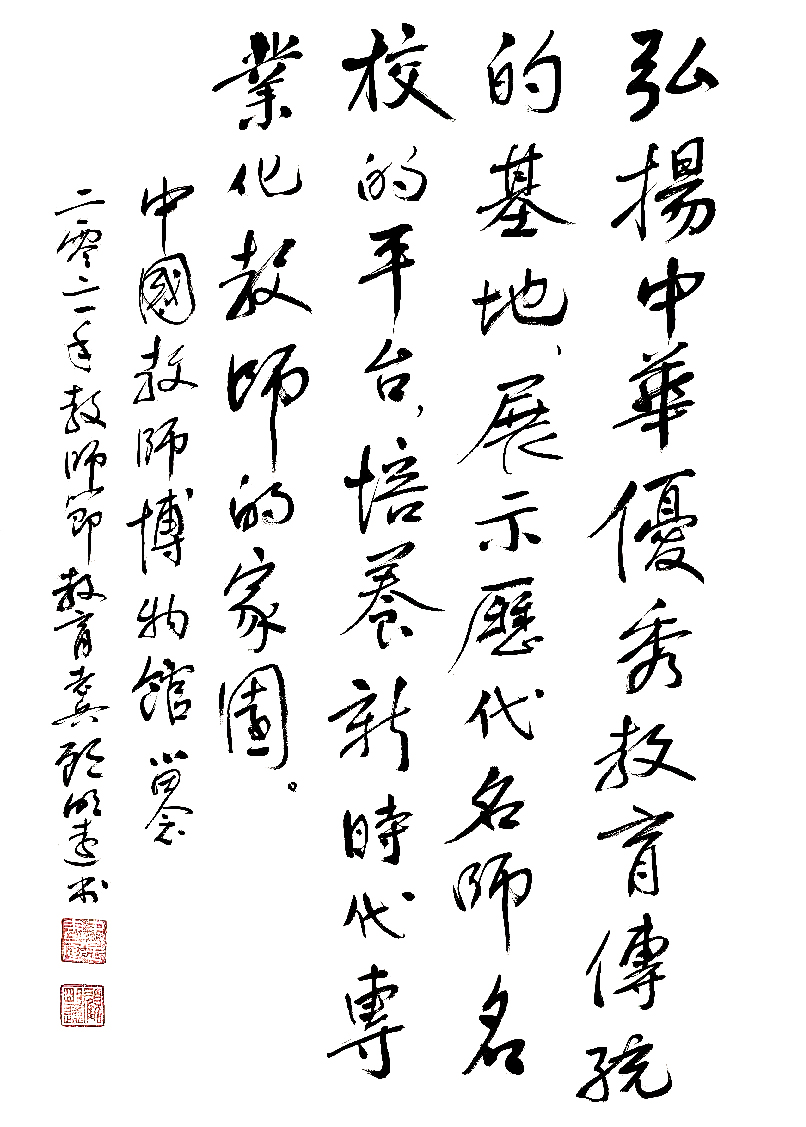 弘揚中華優秀教育傳統
的基地、展示歷代名師名
校的平台，培養新時代專
業化教師的家園。
中國教師博物館留念
二零二一年教師節教育老兵顧明遠书